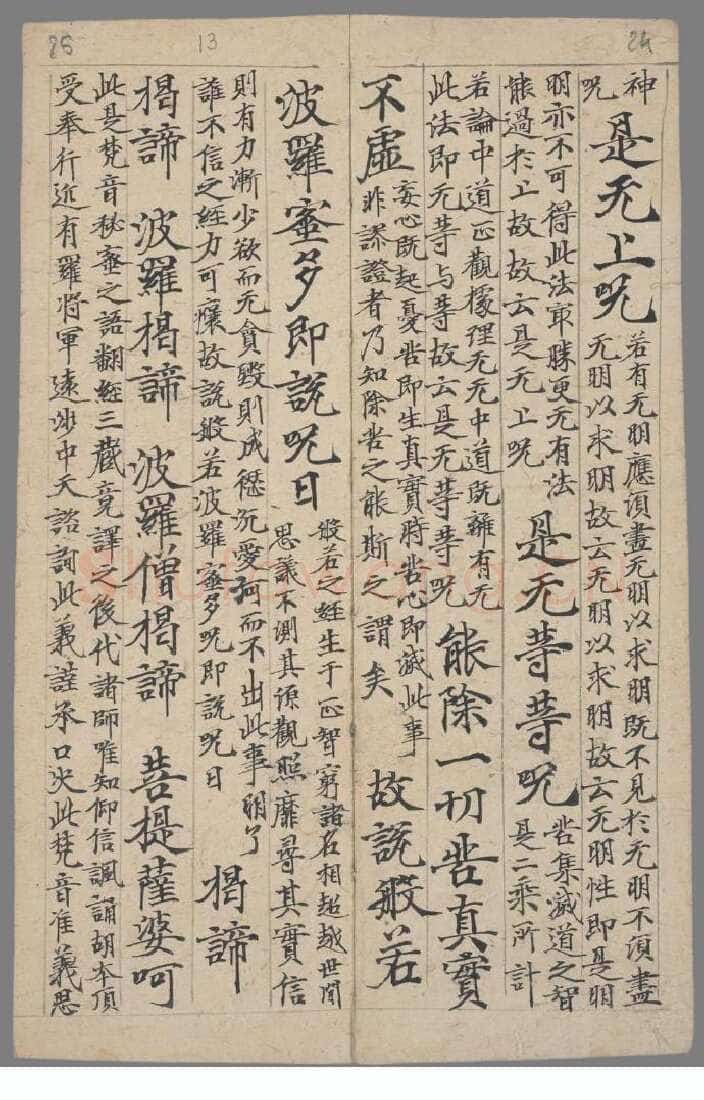 24
13
25
神
呪
是无上呪
若有无明應須盡无明以求明既不見於无明不須盡
无明以求明故云无明以求明故云无明性即是明
明亦不可得此法冣勝更无有法
能過於上故故云是无上呪
是无等等呪
苦集滅道之智
是二乘所計
若論中道正觀據理无无中道既離有无
此法即无等与等故云是无等等呪
能除一切苦真實
不虛
妄心既起憂苦即生真實時苦心即滅此事
非謬證者乃知除苦之能斯之謂矣
故說般若
波羅蜜多即說呪曰
般若之經生于正智窮諸名相超越世間
思議不測其源觀照靡尋其實信
則有力漸少欲而无貪毀則成愆沉愛河而不出此事明了
誰不信之經力可攘故說般若波羅蜜多呪即說呪曰
揭諦
揭諦 波羅揭諦 波羅僧揭諦 菩提薩婆呵
此是梵音秘密之語翻經三藏竟譯之後代諸師唯知仰信諷誦胡本頂
受奉行近有羅將軍遠涉中天諮詢此義謹承口決此梵音准義思